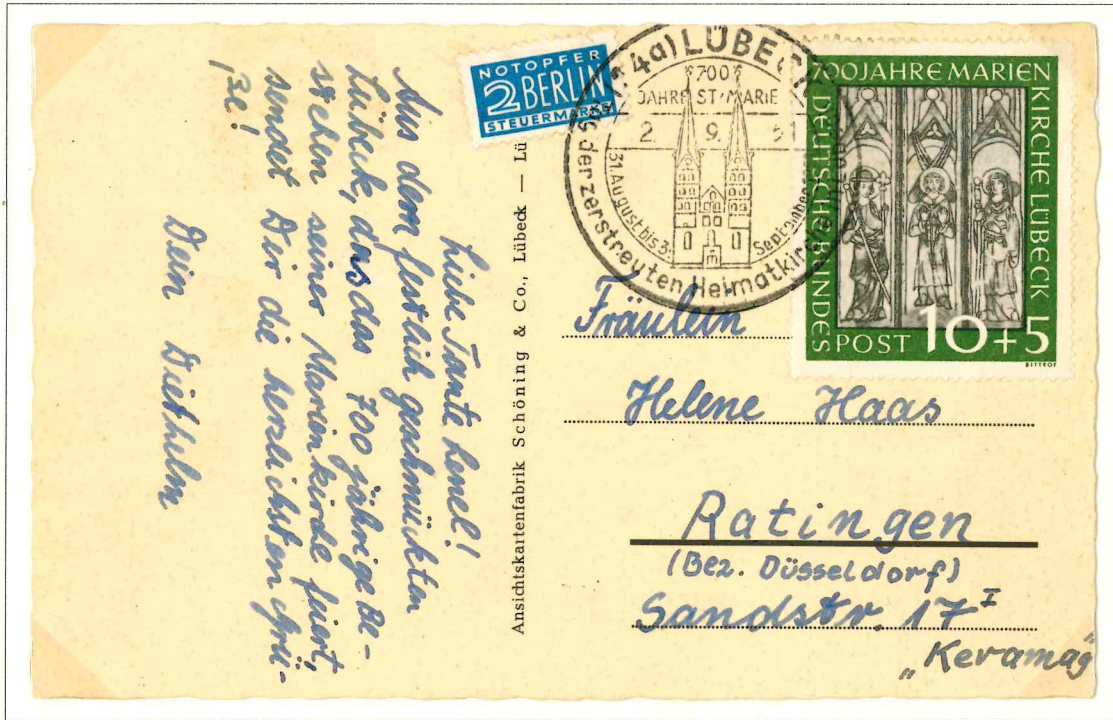 Liebe Tante Lenel!
Aus dem festlich geschmückten
Lübeck, das das 700 jährige Be-
stehen seiner Marienkirche feiert,
sendet Dir die herzlichsten Grü-
ße!
Dein Diethelm
Ansichtskartenfabrik Schöning & Co., Lübeck — Lü
NOTOPFER
2 BERLIN
STEUERMARKE
(24a) LÜBECK
700
JAHRE ST. MARIE
2. 9. 51
31. August bis 3. September
der zerstreuten Heimatkirchen
700 JAHRE MARIEN
KIRCHE LÜBECK
DEUTSCHE BUNDES
POST 10+5
BITTROF
Fräulein
Helene Haas
Ratingen
(Bez. Düsseldorf)
Sandstr. 17 I
„Keramag"